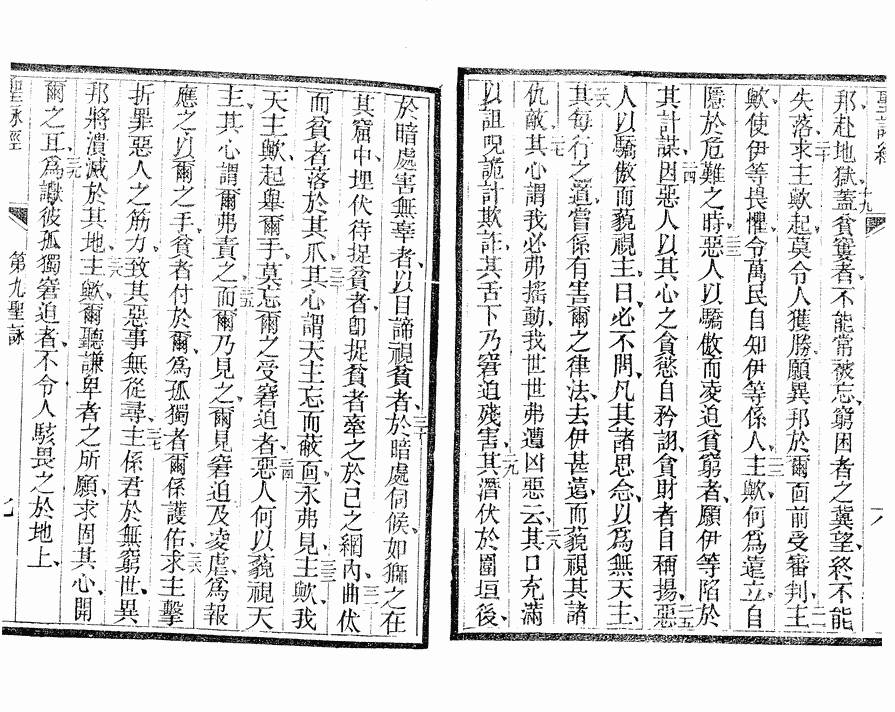 邦赴地獄、十九蓋貧窶者、不能常被忘、窮困者之冀望、終不能
失落、二十求主歟起、莫令人獲勝、願異邦於爾面前受審判、二一主
歟、使伊等畏懼、令萬民自知伊等係人、二二主歟、何爲遠立、自
隱於危難之時、二三惡人以驕傲而凌迫貧窮者、願伊等陷於
其計謀、二四因惡人以其心之貪慾自矜詡、貪財者自稱揚、二五惡
人以驕傲而藐視主、曰、必不問、凡其諸思念、以爲無天主、
二六其每行之道、嘗係有害、爾之律法去伊甚遠、而藐視其諸
仇敵、二七其心謂我必弗搖動、我世世弗遭凶惡云、二八其口充滿
以詛呪詭計欺詐、其舌下乃窘迫殘害、二九其潛伏於圍垣後、
於暗處害無辜者、以目諦視貧者、三十於暗處伺候、如獅之在
其窟中、埋伏待捉貧者、卽捉貧者、牽之於己之網內、三一曲伏
而貧者落於其爪、三二其心謂天主忘而蔽面、永弗見、三三主歟、我
天主歟、起舉爾手、莫忘爾之受窘迫者、三四惡人何以藐視天
主、其心謂爾弗責之、三五而爾乃見之、爾見窘迫及凌虐、爲報
應之以爾之手、貧者付於爾、爲孤獨者爾係護佑、三六求主擊
折罪惡人之筋力、致其惡事無從尋、三七主係君於無窮世、異
邦將潰滅於其地、三八主歟、爾聽謙卑者之所願、求固其心、開
爾之耳、三九爲讞彼孤獨窘迫者、不令人駭畏之於地上、
聖詠經
第九聖詠